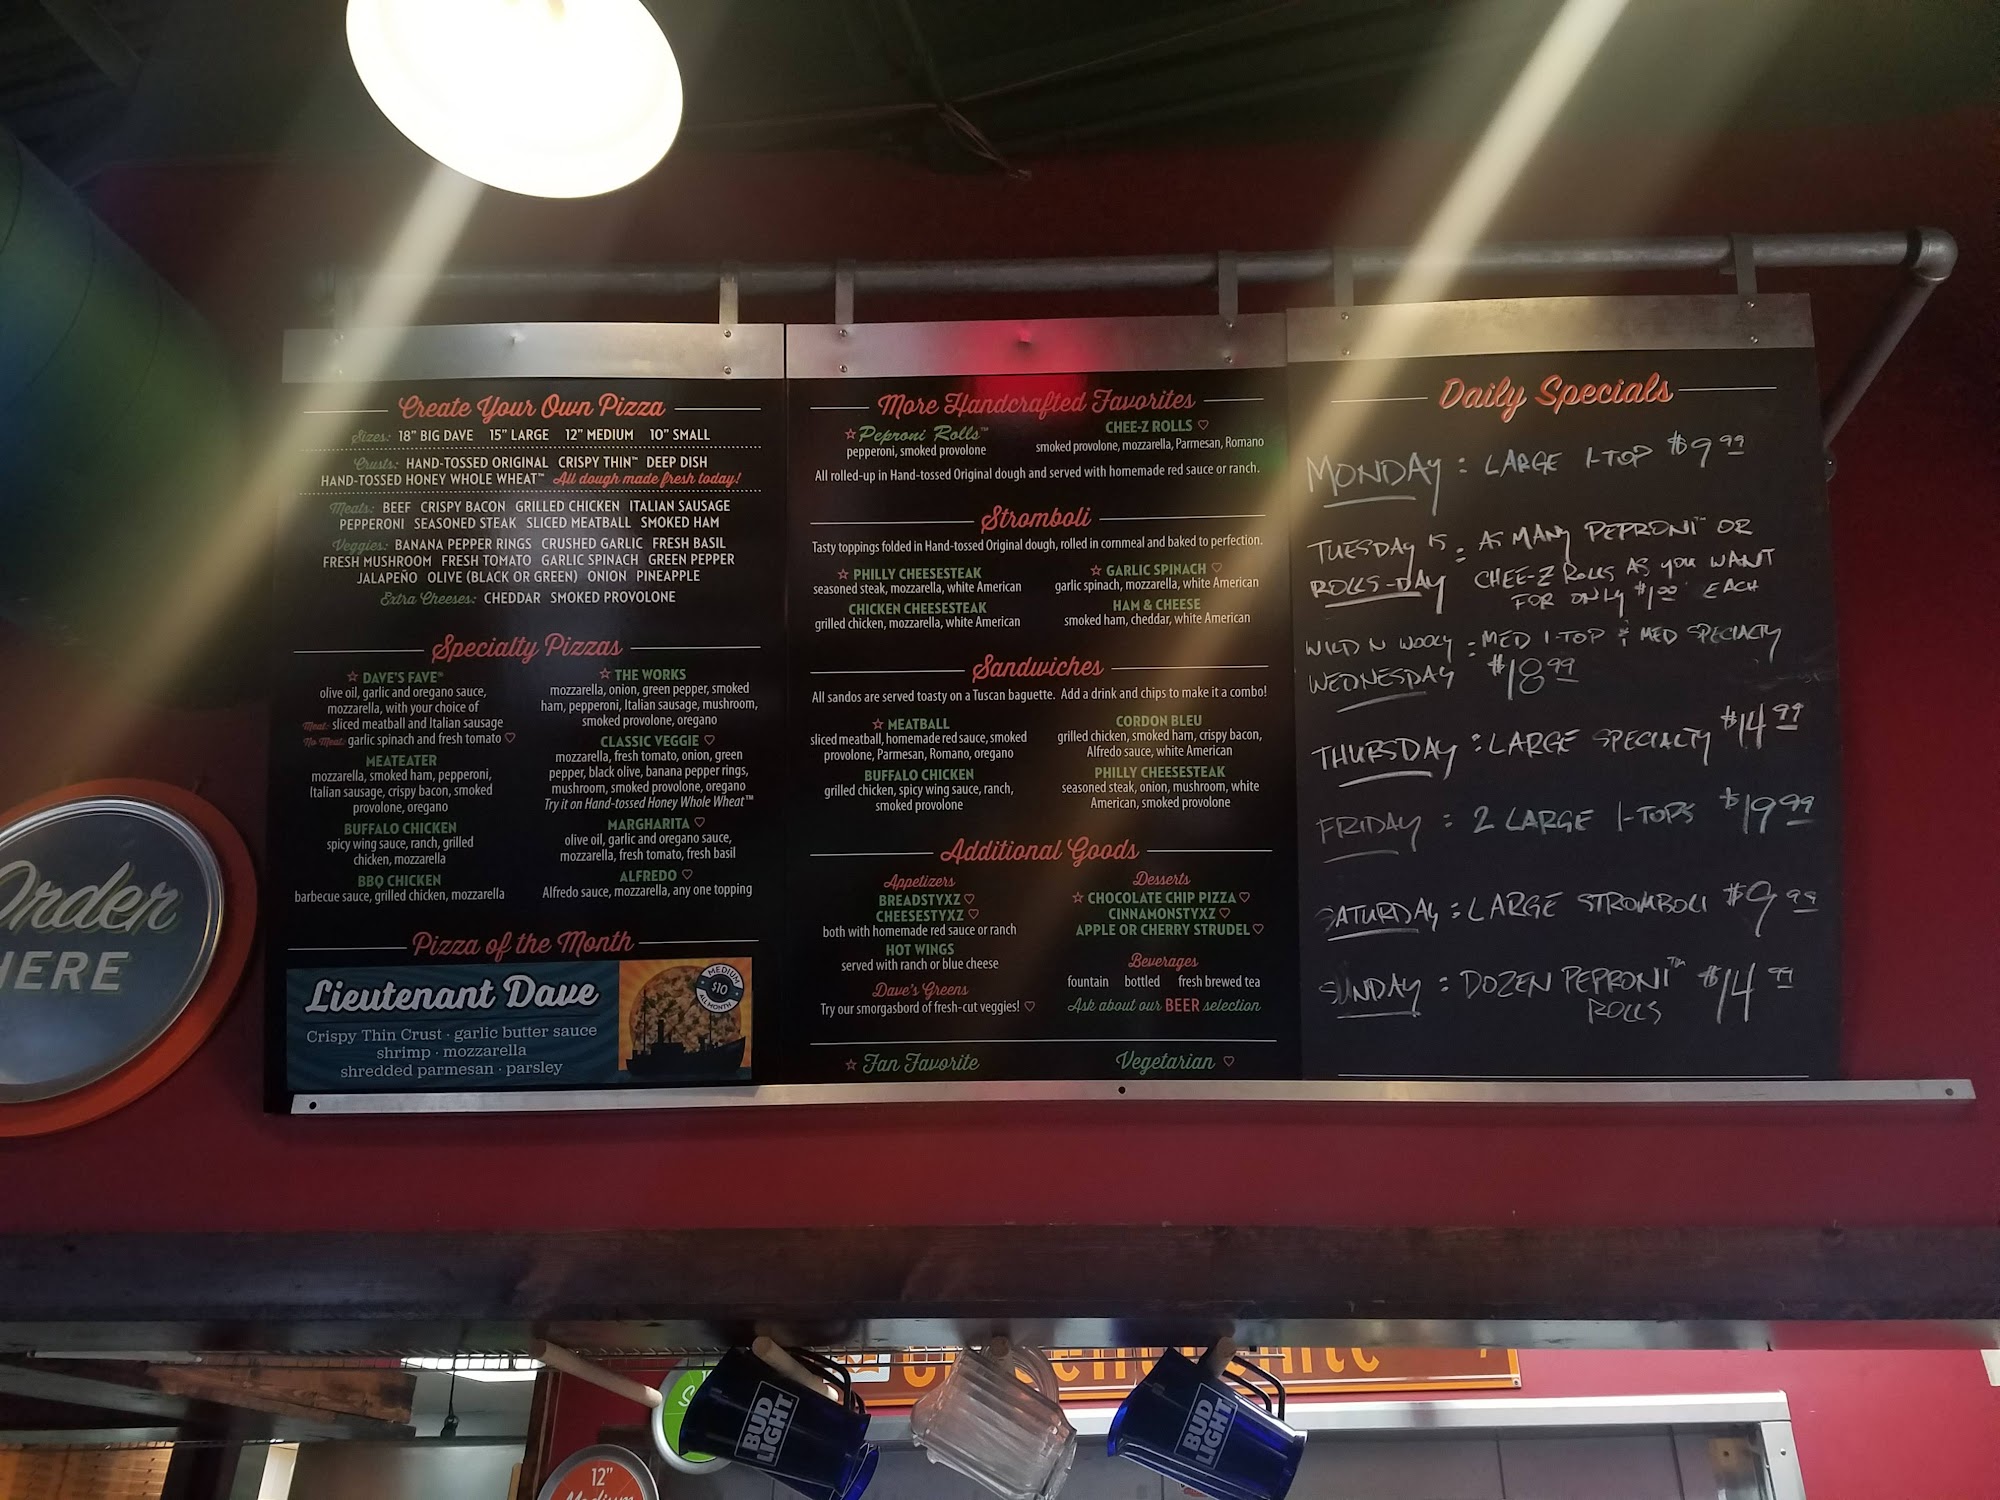 Create Your Own Pizza
Sizes: 18" BIG DAVE 15" LARGE 12" MEDIUM 10" SMALL
Crusts: HAND-TOSSED ORIGINAL CRISPY THIN™ DEEP DISH
HAND-TOSSED HONEY WHOLE WHEAT™ All dough made fresh today!
Meats: BEEF CRISPY BACON GRILLED CHICKEN ITALIAN SAUSAGE
PEPPERONI SEASONED STEAK SLICED MEATBALL SMOKED HAM
Veggies: BANANA PEPPER RINGS CRUSHED GARLIC FRESH BASIL
FRESH MUSHROOM FRESH TOMATO GARLIC SPINACH GREEN PEPPER
JALAPEÑO OLIVE (BLACK OR GREEN) ONION PINEAPPLE
Extra Cheeses: CHEDDAR SMOKED PROVOLONE
Specialty Pizzas
☆ DAVE'S FAVE®
olive oil, garlic and oregano sauce,
mozzarella, with your choice of
Meat: sliced meatball and Italian sausage
No Meat: garlic spinach and fresh tomato ♡
MEATEATER
mozzarella, smoked ham, pepperoni,
Italian sausage, crispy bacon, smoked
provolone, oregano
BUFFALO CHICKEN
spicy wing sauce, ranch, grilled
chicken, mozzarella
BBQ CHICKEN
barbecue sauce, grilled chicken, mozzarella
☆ THE WORKS
mozzarella, onion, green pepper, smoked
ham, pepperoni, Italian sausage, mushroom,
smoked provolone, oregano
CLASSIC VEGGIE ♡
mozzarella, fresh tomato, onion, green
pepper, black olive, banana pepper rings,
mushroom, smoked provolone, oregano
Try it on Hand-tossed Honey Whole Wheat™
MARGHARITA ♡
olive oil, garlic and oregano sauce,
mozzarella, fresh tomato, fresh basil
ALFREDO ♡
Alfredo sauce, mozzarella, any one topping
Pizza of the Month
Lieutenant Dave
Crispy Thin Crust · garlic butter sauce
shrimp · mozzarella
shredded parmesan · parsley
MEDIUM
$10
ALL MONTH
More Handcrafted Favorites
☆ Peproni Rolls™
pepperoni, smoked provolone
CHEE-Z ROLLS ♡
smoked provolone, mozzarella, Parmesan, Romano
All rolled-up in Hand-tossed Original dough and served with homemade red sauce or ranch.
Stromboli
Tasty toppings folded in Hand-tossed Original dough, rolled in cornmeal and baked to perfection.
☆ PHILLY CHEESESTEAK
seasoned steak, mozzarella, white American
CHICKEN CHEESESTEAK
grilled chicken, mozzarella, white American
☆ GARLIC SPINACH ♡
garlic spinach, mozzarella, white American
HAM & CHEESE
smoked ham, cheddar, white American
Sandwiches
All sandos are served toasty on a Tuscan baguette. Add a drink and chips to make it a combo!
☆ MEATBALL
sliced meatball, homemade red sauce, smoked
provolone, Parmesan, Romano, oregano
BUFFALO CHICKEN
grilled chicken, spicy wing sauce, ranch,
smoked provolone
CORDON BLEU
grilled chicken, smoked ham, crispy bacon,
Alfredo sauce, white American
PHILLY CHEESESTEAK
seasoned steak, onion, mushroom, white
American, smoked provolone
Additional Goods
Appetizers
BREADSTYXZ ♡
CHEESESTYXZ ♡
both with homemade red sauce or ranch
HOT WINGS
served with ranch or blue cheese
Dave's Greens
Try our smorgasbord of fresh-cut veggies! ♡
Desserts
☆ CHOCOLATE CHIP PIZZA ♡
CINNAMONSTYXZ ♡
APPLE OR CHERRY STRUDEL ♡
Beverages
fountain bottled fresh brewed tea
Ask about our BEER selection
☆ Fan Favorite
Vegetarian ♡
Daily Specials
MONDAY : LARGE 1-TOP $9.99
TUESDAY IS : AS MANY PEPRONI™ OR
ROLLS-DAY CHEE-Z ROLLS AS YOU WANT
FOR ONLY $1.00 EACH
WILD N WOOLY : MED 1-TOP & MED SPECIALTY
WEDNESDAY $18.99
THURSDAY : LARGE SPECIALTY $14.99
FRIDAY : 2 LARGE 1-TOPS $19.99
SATURDAY : LARGE STROMBOLI $9.99
SUNDAY : DOZEN PEPRONI™ $14.99
ROLLS
Order
HERE
BUD
LIGHT
BUD
LIGHT
12"
Medium